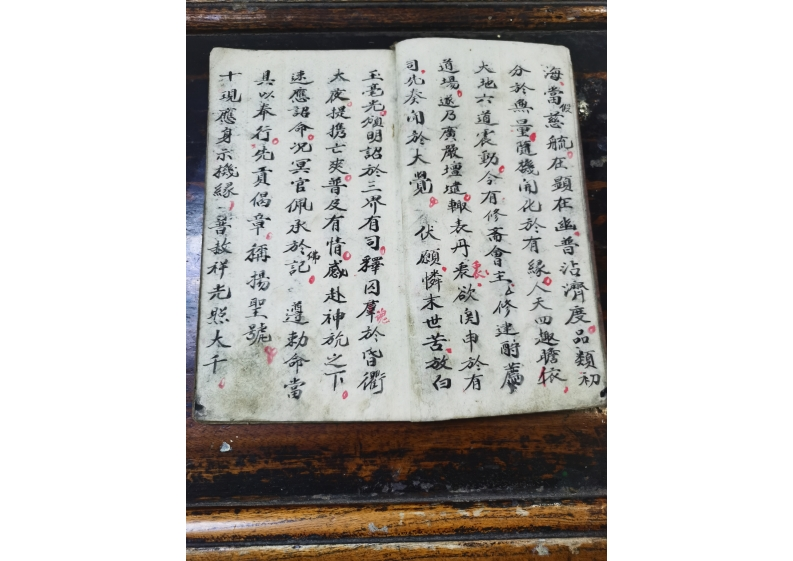 海當假慈航在顯在幽普沾濟度品類初
分於無量隨機開化於有緣人天四趣瞻依
大地六道震動今有修斋會主修建酬薦
道場遂乃廣嚴壇墠輙表丹衷衷欲闵申於有
司先奏聞於大覺 伏願憐末世苦放白
玉毫光頒明詔於三界有司釋囚羣魂於昏衢
太夜提携亡爽普及有情咸赴神旂之下
速應詔命况冥官佩承於佛記 遵勅命當
具以奉行先貢偈章稱揚聖號
十現應身示機緣 普放祥光照大千